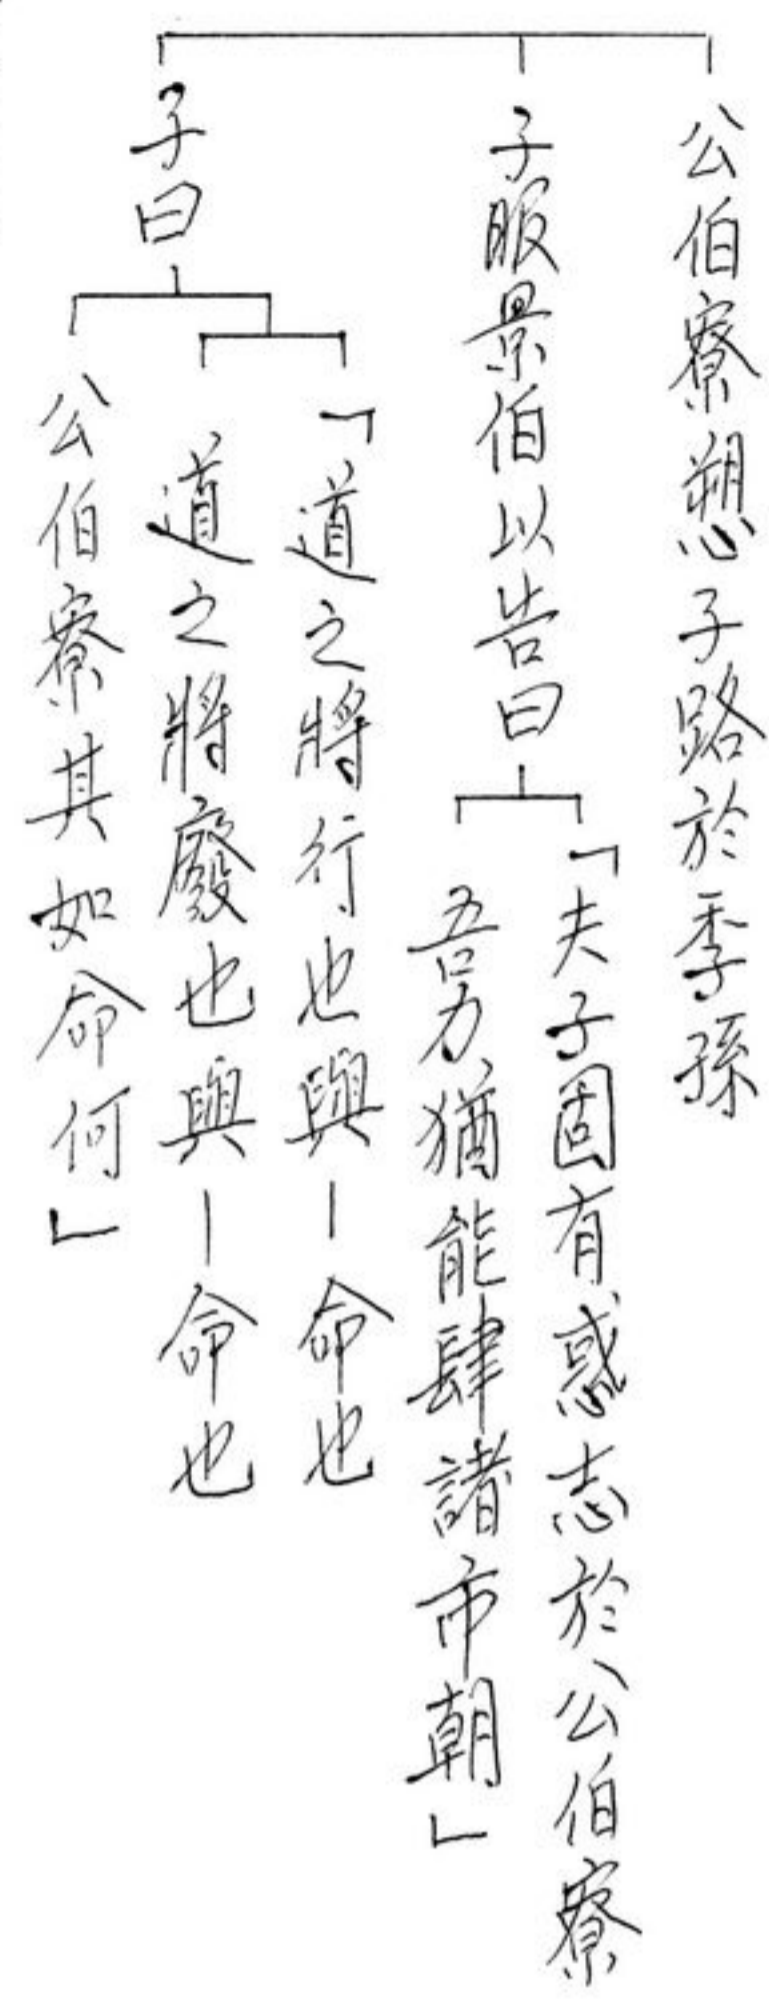 公伯寮愬子路於季孫
子服景伯以告曰
「夫子固有惑志於公伯寮
吾力猶能肆諸市朝」
子曰
「道之將行也與－命也
道之將廢也與－命也
公伯寮其如命何」